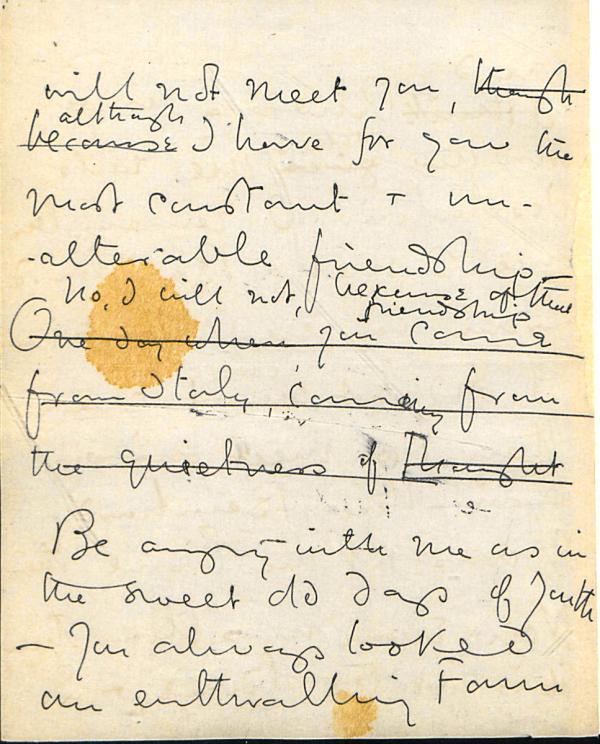 will not meet you, though
although
because I have for you the
most constant + un-
-alterable friendship.
No, I will not, because of that
friendship
One day when you came
from Italy, coming from
the quietness of Thought
Be angry with me as in
the sweet old days of Youth
— You always looked
an enthralling Faun